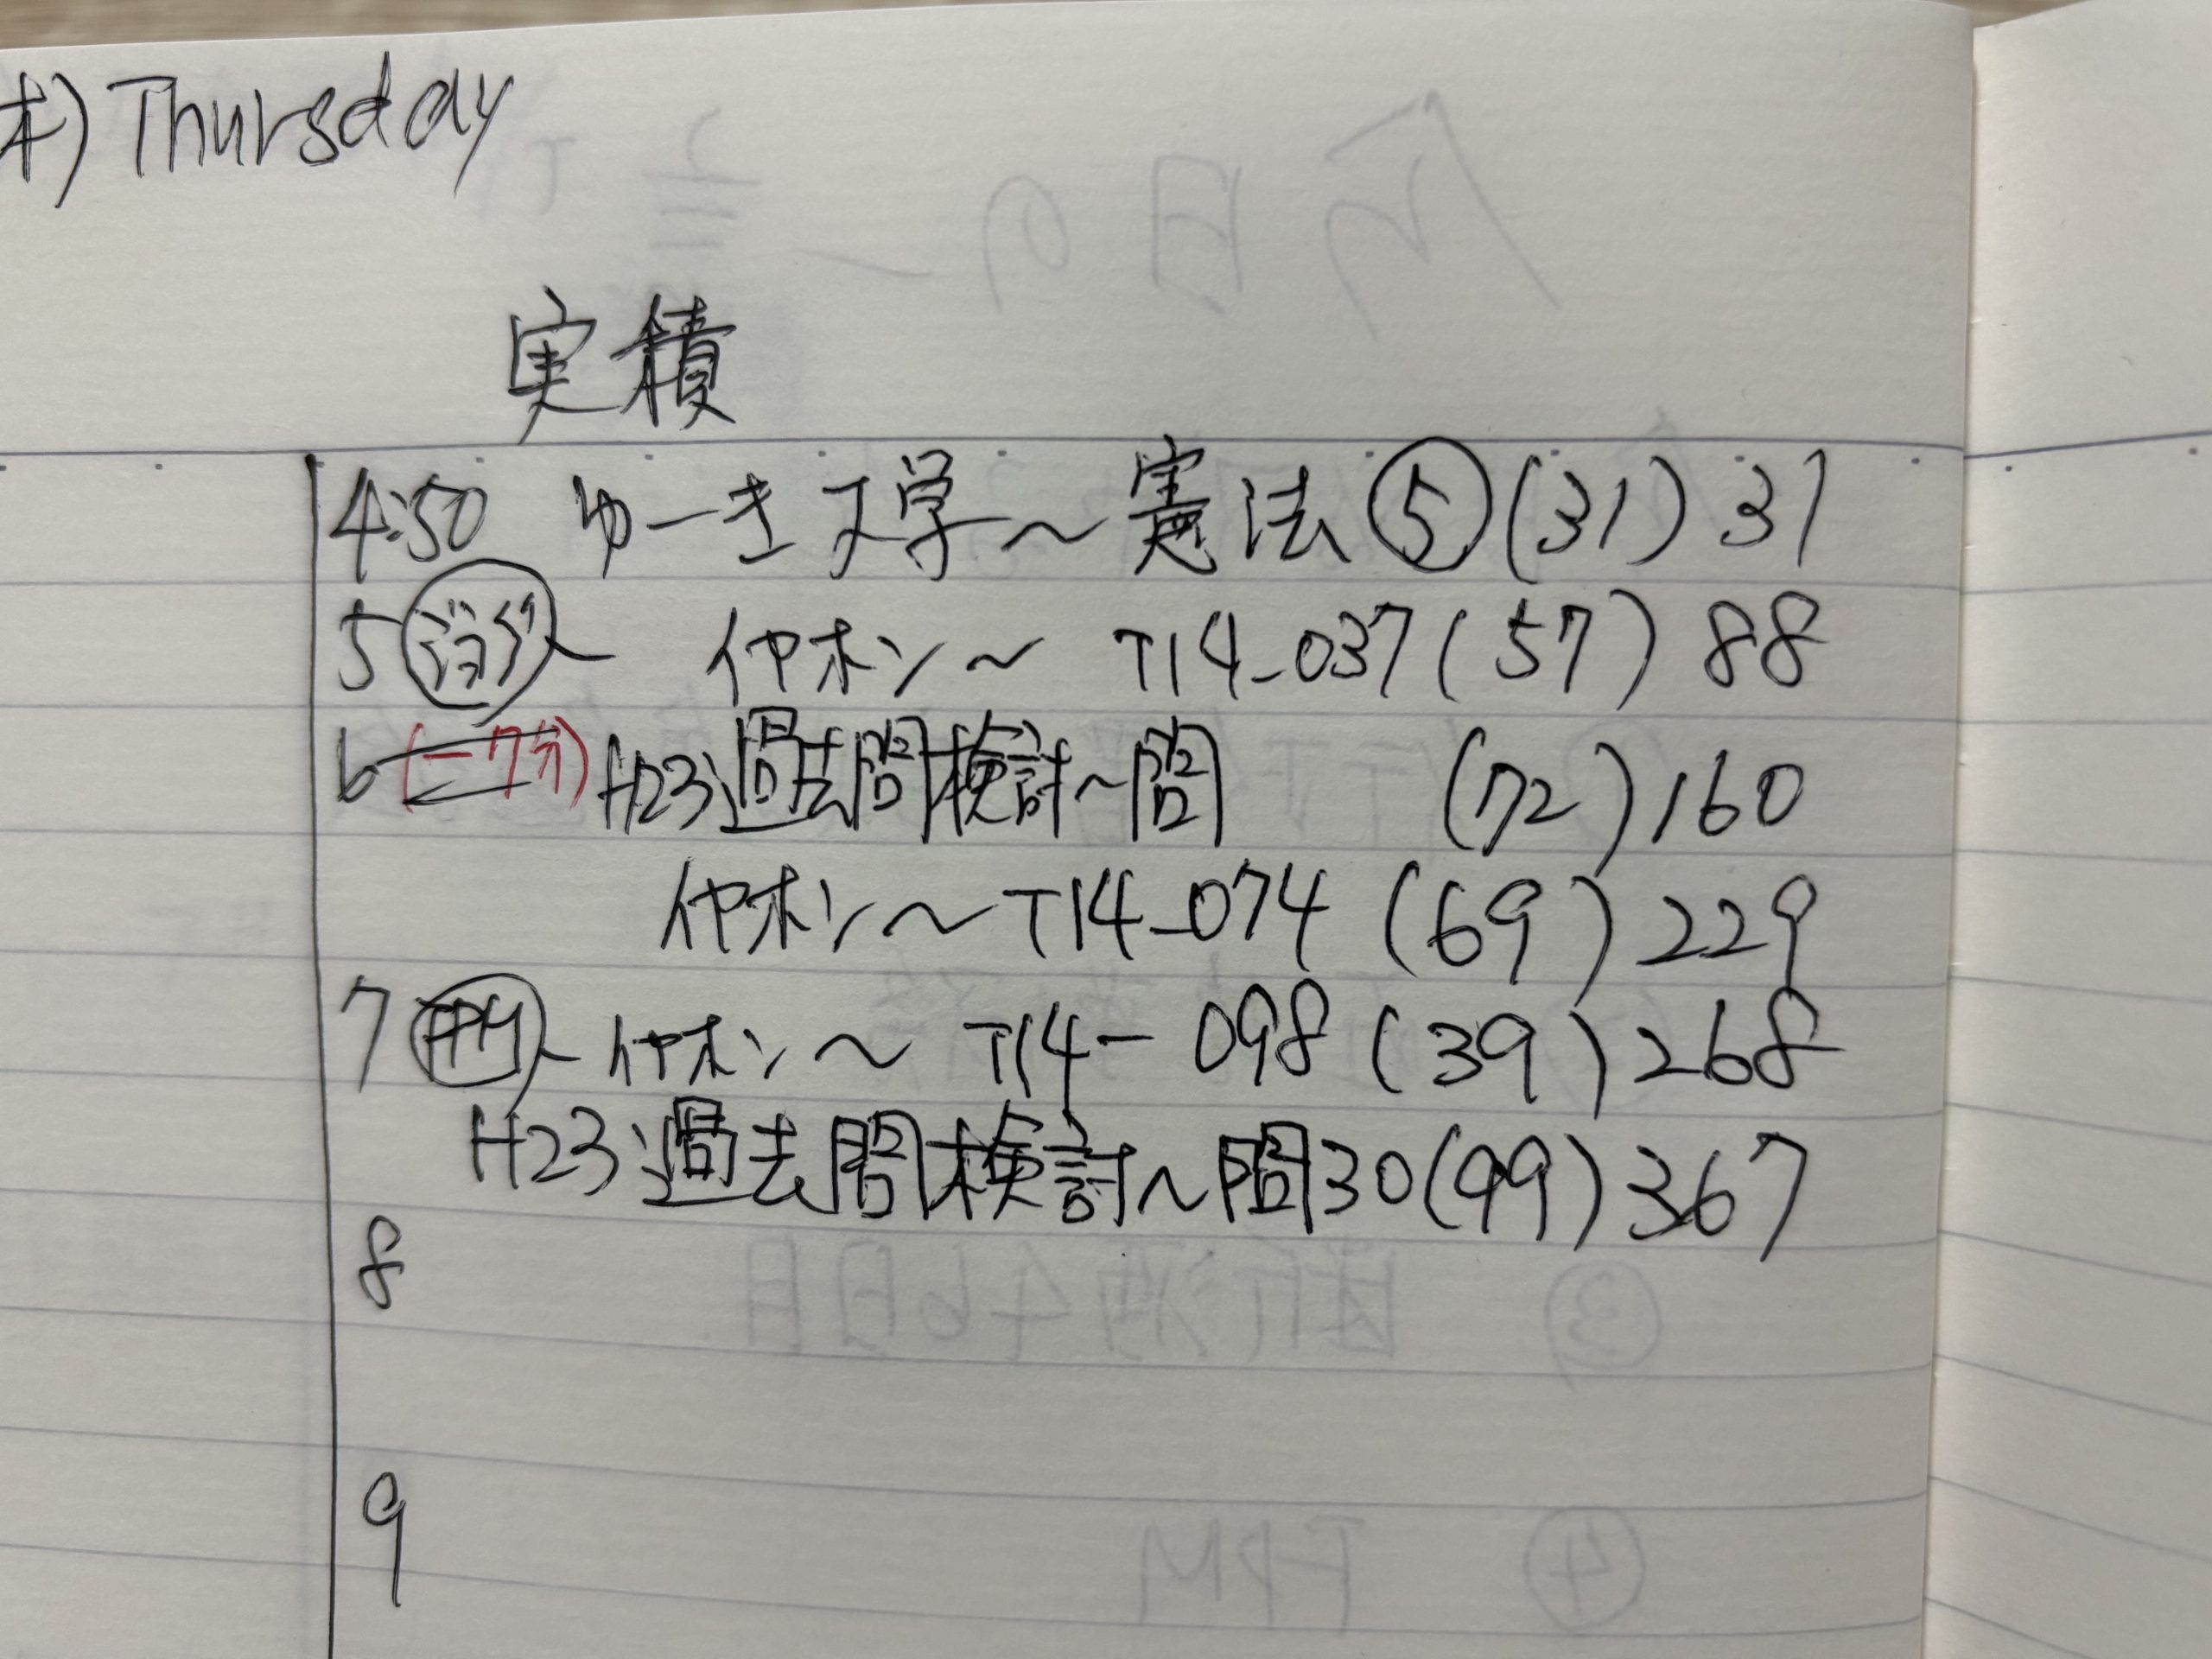 木) Thursday
実積
4:50 ゆーき大学〜憲法⑤(31) 31
5 ジョグ イヤホン〜 T14-037(57) 88
6 (-7分) H23過去問検討〜問 (72) 160
イヤホン〜T14-074 (69) 229
7 FPM イヤホン〜 T14-098 (39) 268
H23過去問検討〜問30(99) 367
8
9